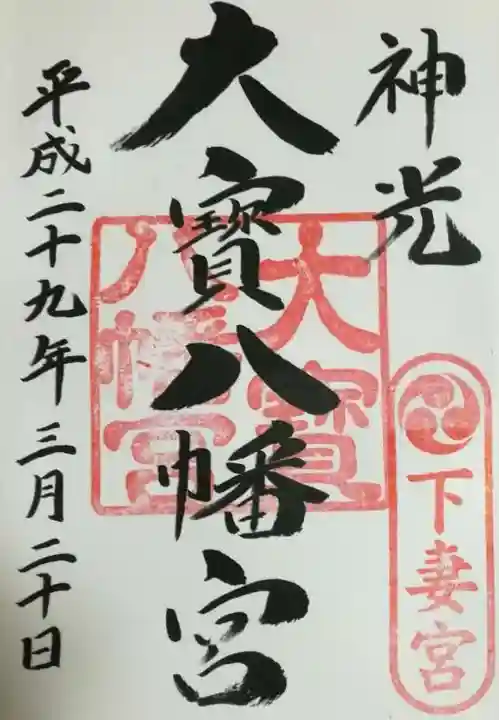 神光
下妻宮
大寶八幡宮
大寶
八幡宮
平成二十九年三月二十日